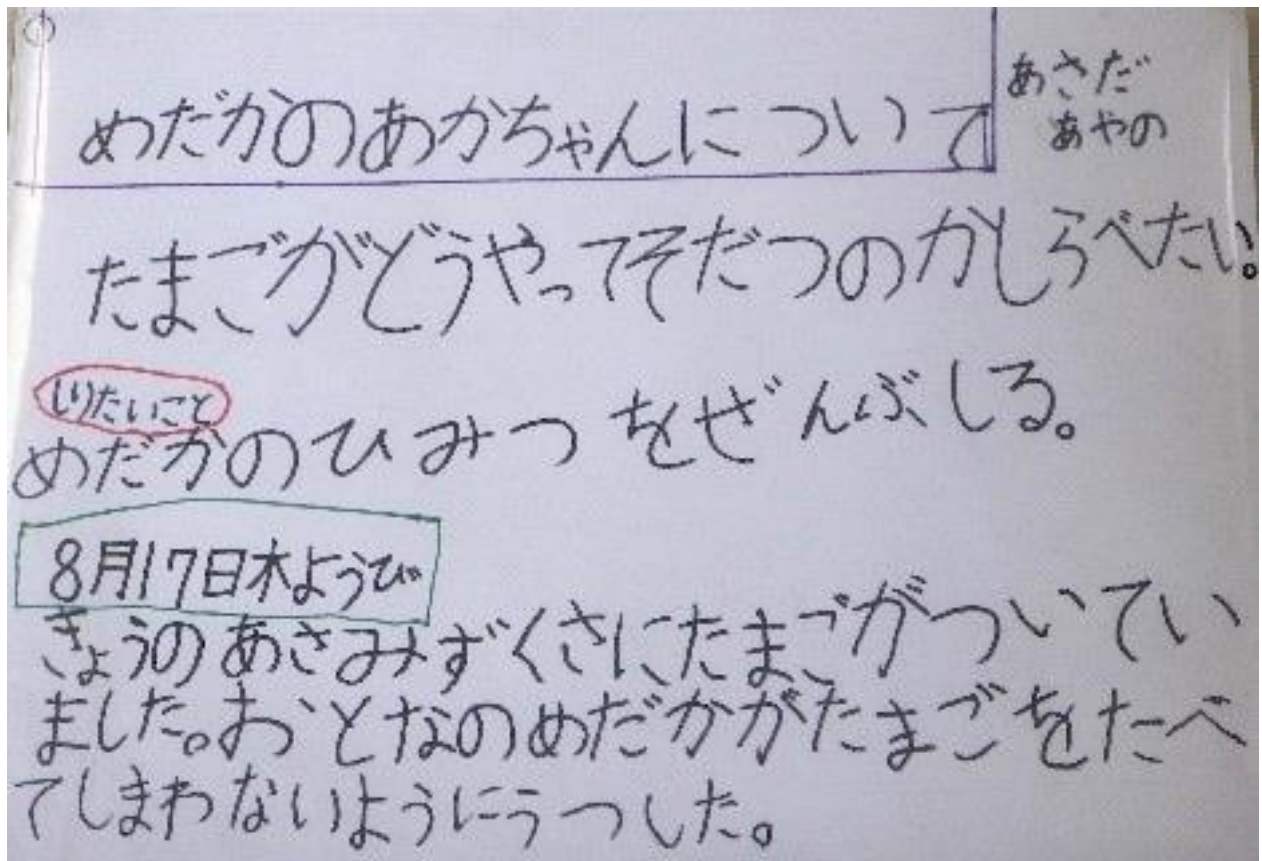 めだかのあかちゃんについて
あさだ
あやの
たまごがどうやってそだつのかしらべたい。
しりたいこと
めだかのひみつをぜんぶしる。
8月17日木ようび
きょうのあさみずくさにたまごがついてい
ました。おとなのめだかがたまごをたべ
てしまわないようにうつした。